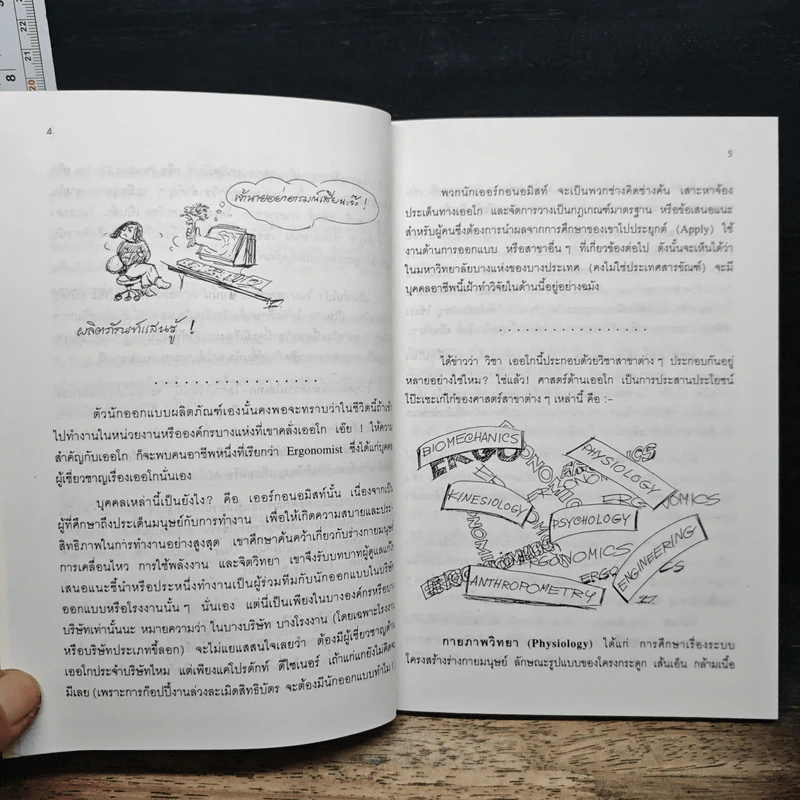 4
เจ้านายอย่าอารมณ์เสียนะจ๊ะ !
ผลิตภัณฑ์แสนรู้ !
ตัวนักออกแบบผลิตภัณฑ์เองนั้นคงพอจะทราบว่าในชีวิตนี้ถ้าเข้า
ไปทำงานในหน่วยงานหรือองค์กรบางแห่งที่เขาคลั่งเออโก เอ๊ย ! ให้ความ
สำคัญกับเออโก ก็จะพบคนอาชีพหนึ่งที่เรียกว่า Ergonomist ซึ่งได้แก่บุคคล
ผู้เชี่ยวชาญเรื่องเออโกนั่นเอง
บุคคลเหล่านี้เป็นยังไง? คือ เออร์กอนอมิสท์นั้น เนื่องจากเป็น
ผู้ที่ศึกษาถึงประเด็นมนุษย์กับการทำงาน เพื่อให้เกิดความสบายและประ-
สิทธิภาพในการทำงานอย่างสูงสุด เขาศึกษาค้นคว้าเกี่ยวกับร่างกายมนุษย์
การเคลื่อนไหว การใช้พลังงาน และจิตวิทยา เขาจึงรับบทบาทผู้ดูแลแก้ไข
เสนอแนะชี้นำหรือประหนึ่งทำงานเป็นผู้ร่วมทีมกับนักออกแบบในบริษัท
ออกแบบหรือโรงงานนั้น ๆ นั่นเอง แต่นี่เป็นเพียงในบางองค์กรหรือบาง
บริษัทเท่านั้นนะ หมายความว่า ในบางบริษัท บางโรงงาน (โดยเฉพาะโรงงาน
หรือบริษัทประเภทขี้ลอก) จะไม่แยแสสนใจเลยว่า ต้องมีผู้เชี่ยวชาญด้าน
เออโกประจำบริษัทไหม แต่เพียงแค่โปรดักท์ ดีไซเนอร์ เถ้าแก่แกยังไม่คิดจะ
มีเลย (เพราะการก๊อปปี้งานล่วงละเมิดสิทธิบัตร จะต้องมีนักออกแบบทำไม !
5
พวกนักเออร์กอนอมิสท์ จะเป็นพวกช่างคิดช่างค้น เสาะหาจ้อง
ประเด็นทางเออโก และจัดการวางเป็นกฎเกณฑ์มาตรฐาน หรือข้อเสนอแนะ
สำหรับผู้คนซึ่งต้องการนำผลจากการศึกษาของเขาไปประยุกต์ (Apply) ใช้
งานด้านการออกแบบ หรือสาขาอื่น ๆ ที่เกี่ยวข้องต่อไป ดังนั้นจะเห็นได้ว่า
ในมหาวิทยาลัยบางแห่งของบางประเทศ (คงไม่ใช่ประเทศสารขัณฑ์) จะมี
บุคคลอาชีพนี้เฝ้าทำวิจัยในด้านนี้อยู่อย่างฉมัง
ได้ข่าวว่า วิชา เออโกนี้ประกอบด้วยวิชาสาขาต่าง ๆ ประกอบกันอยู่
หลายอย่างใช่ไหม? ใช่แล้ว! ศาสตร์ด้านเออโก เป็นการประสานประโยชน์
โป๊ะเชะเกไก่ของศาสตร์สาขาต่าง ๆ เหล่านี้ คือ :-
BIOMECHANICS
PHYSIOLOGY
KINESIOLOGY
PSYCHOLOGY
ERGONOMICS
ENGINEERING
ANTHROPOMETRY
กายภาพวิทยา (Physiology) ได้แก่ การศึกษาเรื่องระบบ
โครงสร้างร่างกายมนุษย์ ลักษณะรูปแบบของโครงกระดูก เส้นเอ็น กล้ามเนื้อ
22
21
20
8